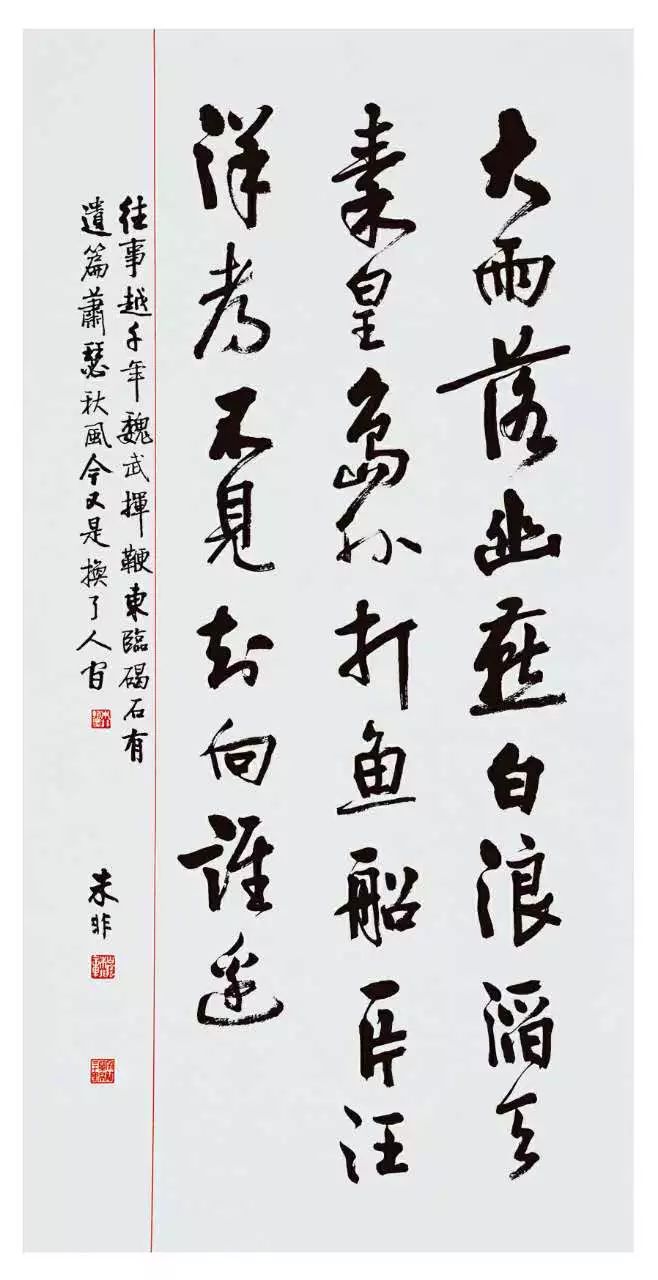 大雨落幽燕白浪滔天
秦皇島外打鱼船一片汪
洋都不見知向誰邊
往事越千年魏武揮鞭東臨碣石有
遺篇蕭瑟秋風今又是換了人间
未非